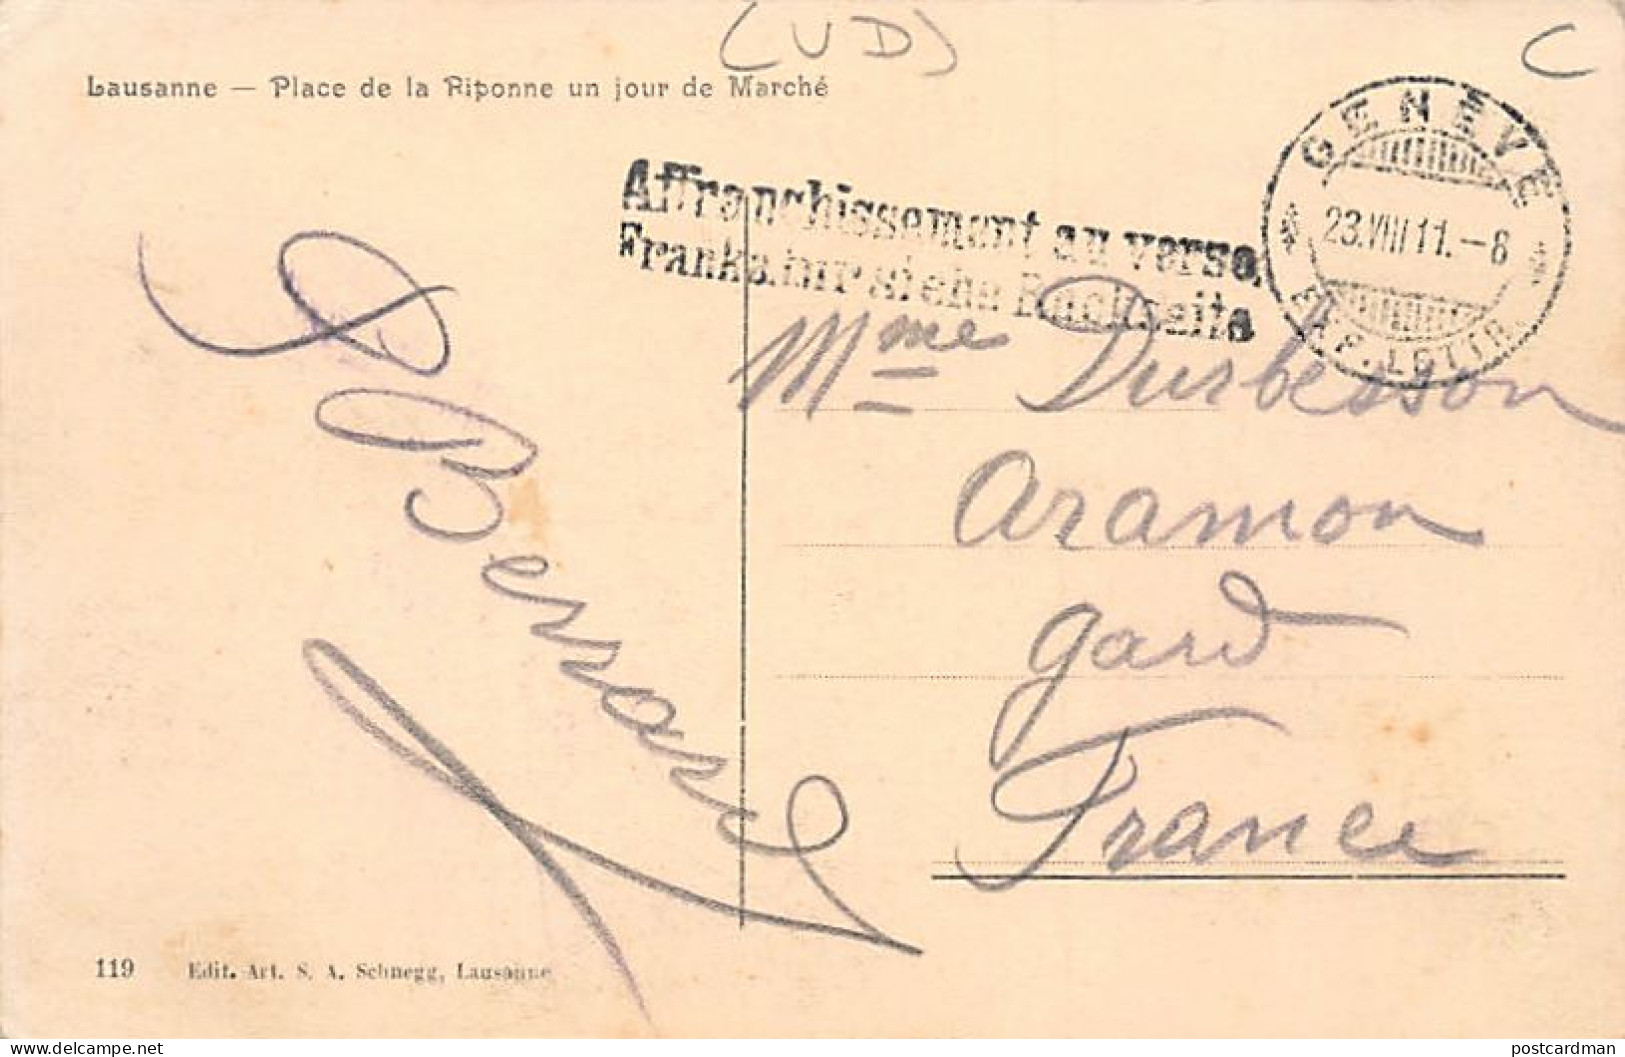 (VD)
C
Lausanne — Place de la Riponne un jour de Marché
GENÈVE
23.VIII 11.-8
EXP. LETTR.
Affranchissement au verso,
Frankatur siehe Rückseite
Mme Durbesson
Aramon
Gard
France
119 Edit. Art. S. A. Schnegg, Lausanne
postcardman